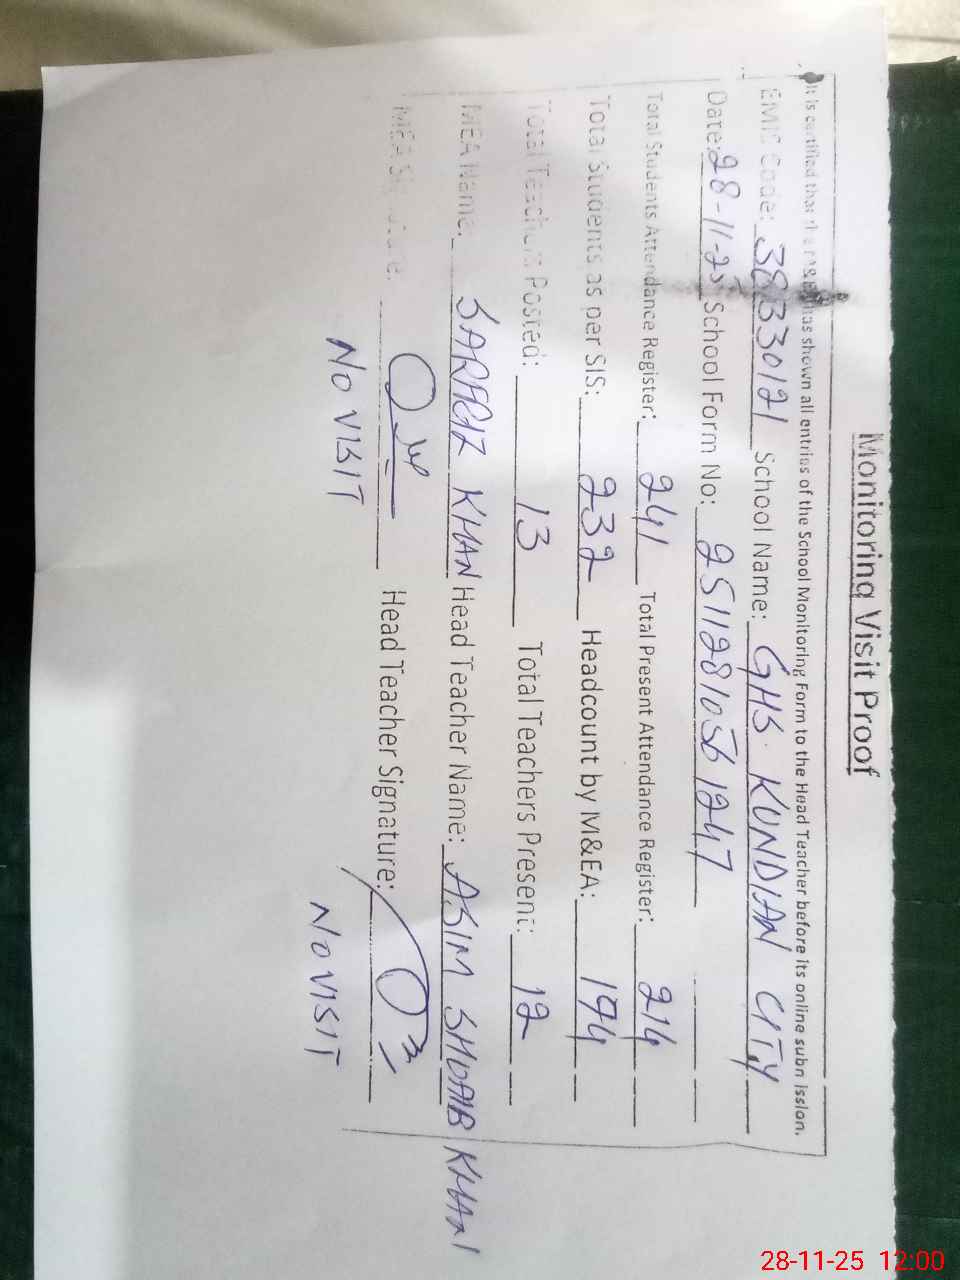 Monitoring Visit Proof
It is certified that the M&EA has shown all entries of the School Monitoring Form to the Head Teacher before its online submission.
EMIS Code: 38330121 School Name: GHS KUNDIAN CITY
Date: 28-11-25 School Form No: 25112810561247
Total Students Attendance Register: 241 Total Present Attendance Register: 214
Total Students as per SIS: 232 Headcount by M&EA: 194
Total Teachers Posted: 13 Total Teachers Present: 12
MEA Name: KHAN Head Teacher Name: ASIM SHOAIB KHAN
MEA Signature: Head Teacher Signature:
NO VISIT NO VISIT
28-11-25 12:00